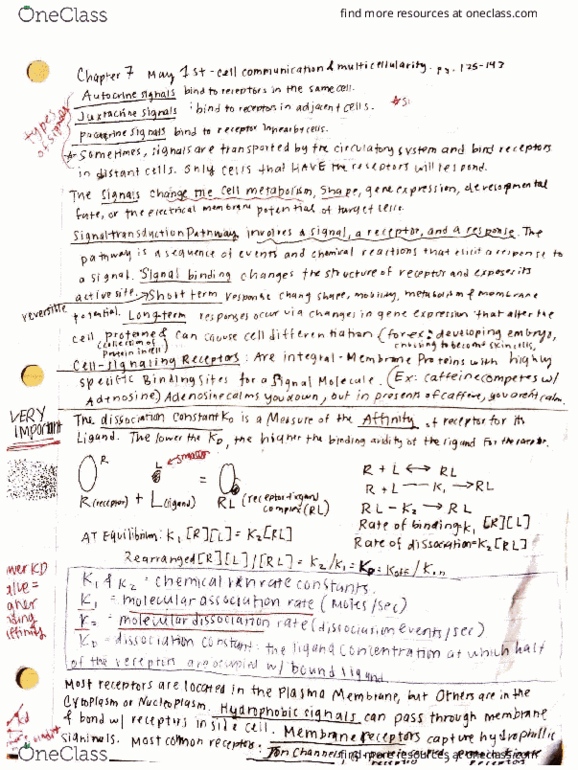 OneClass
find more resources at oneclass.com
Chapter 7 May 1st - cell communication & multicellularity. pg. 125-143
Autocrine signals bind to receptors in the same cell.
Juxtacrine signals : bind to receptors in adjacent cells.
types of signals
paracrine signals bind to receptor in nearby cells.
Sometimes, signals are transported by the circulatory system and bind receptors
in distant cells. Only cells that HAVE the receptors will respond.
The signals change the cell metabolism, shape, gene expression, developmental
fate, or the electrical membrane potential of target cells.
Signal transduction Pathway involves a signal, a receptor, and a response. The
pathway is a sequence of events and chemical reactions that elicit a response to
a signal. Signal binding changes the structure of receptor and exposes its
active site. Short term response chang shape, mobility, metabolism & membrane
reversible
potential. Long term responses occur via changes in gene expression that alter the
cell proteome & can cause cell differentiation (for ex: developing embryo,
(collection of protein in cell)
choosing to become skin cells,
Cell-signaling Receptors: Are integral-Membrane Proteins with highly
specific Binding Sites for a Signal Molecule. (Ex: caffeine competes w/
Adenosine) Adenosine calms you down, but in presents of caffeine, you arent calm.
VERY IMPORTANT
The dissociation constant KD is a Measure of the Affinity of receptor for its
Ligand. The lower the KD, the higher the binding avidity of the ligand for the receptor.
R
L
smaller
R (receptor) + L (ligand) = RL (receptor-ligand complex (RL)
R + L ⟷ RL
R + L — K1 → RL
RL - K2 → RL
Rate of binding = K1 [R][L]
Rate of dissociation = K2 [RL]
AT Equilibrium: K1 [R][L] = K2 [RL]
Rearranged [R][L]/[RL] = K2/K1 = KD = Koff/Kin
K1 & K2 = chemical rxn rate constants.
K1 = molecular association rate (Moles/sec)
K2 = molecular dissociation rate (dissociation events/sec)
KD = dissociation constant: the ligand concentration at which half
of the receptors are occupied w/ bound ligand
Most receptors are located in the Plasma Membrane, but Others are in the
Cytoplasm or Nucleoplasm. Hydrophobic signals can pass through membrane
& bond w/ receptors in side cell. Membrane receptors capture hydrophillic
signals. Most common receptors: Ion Channel
OneClass
find more resources at oneclass.com